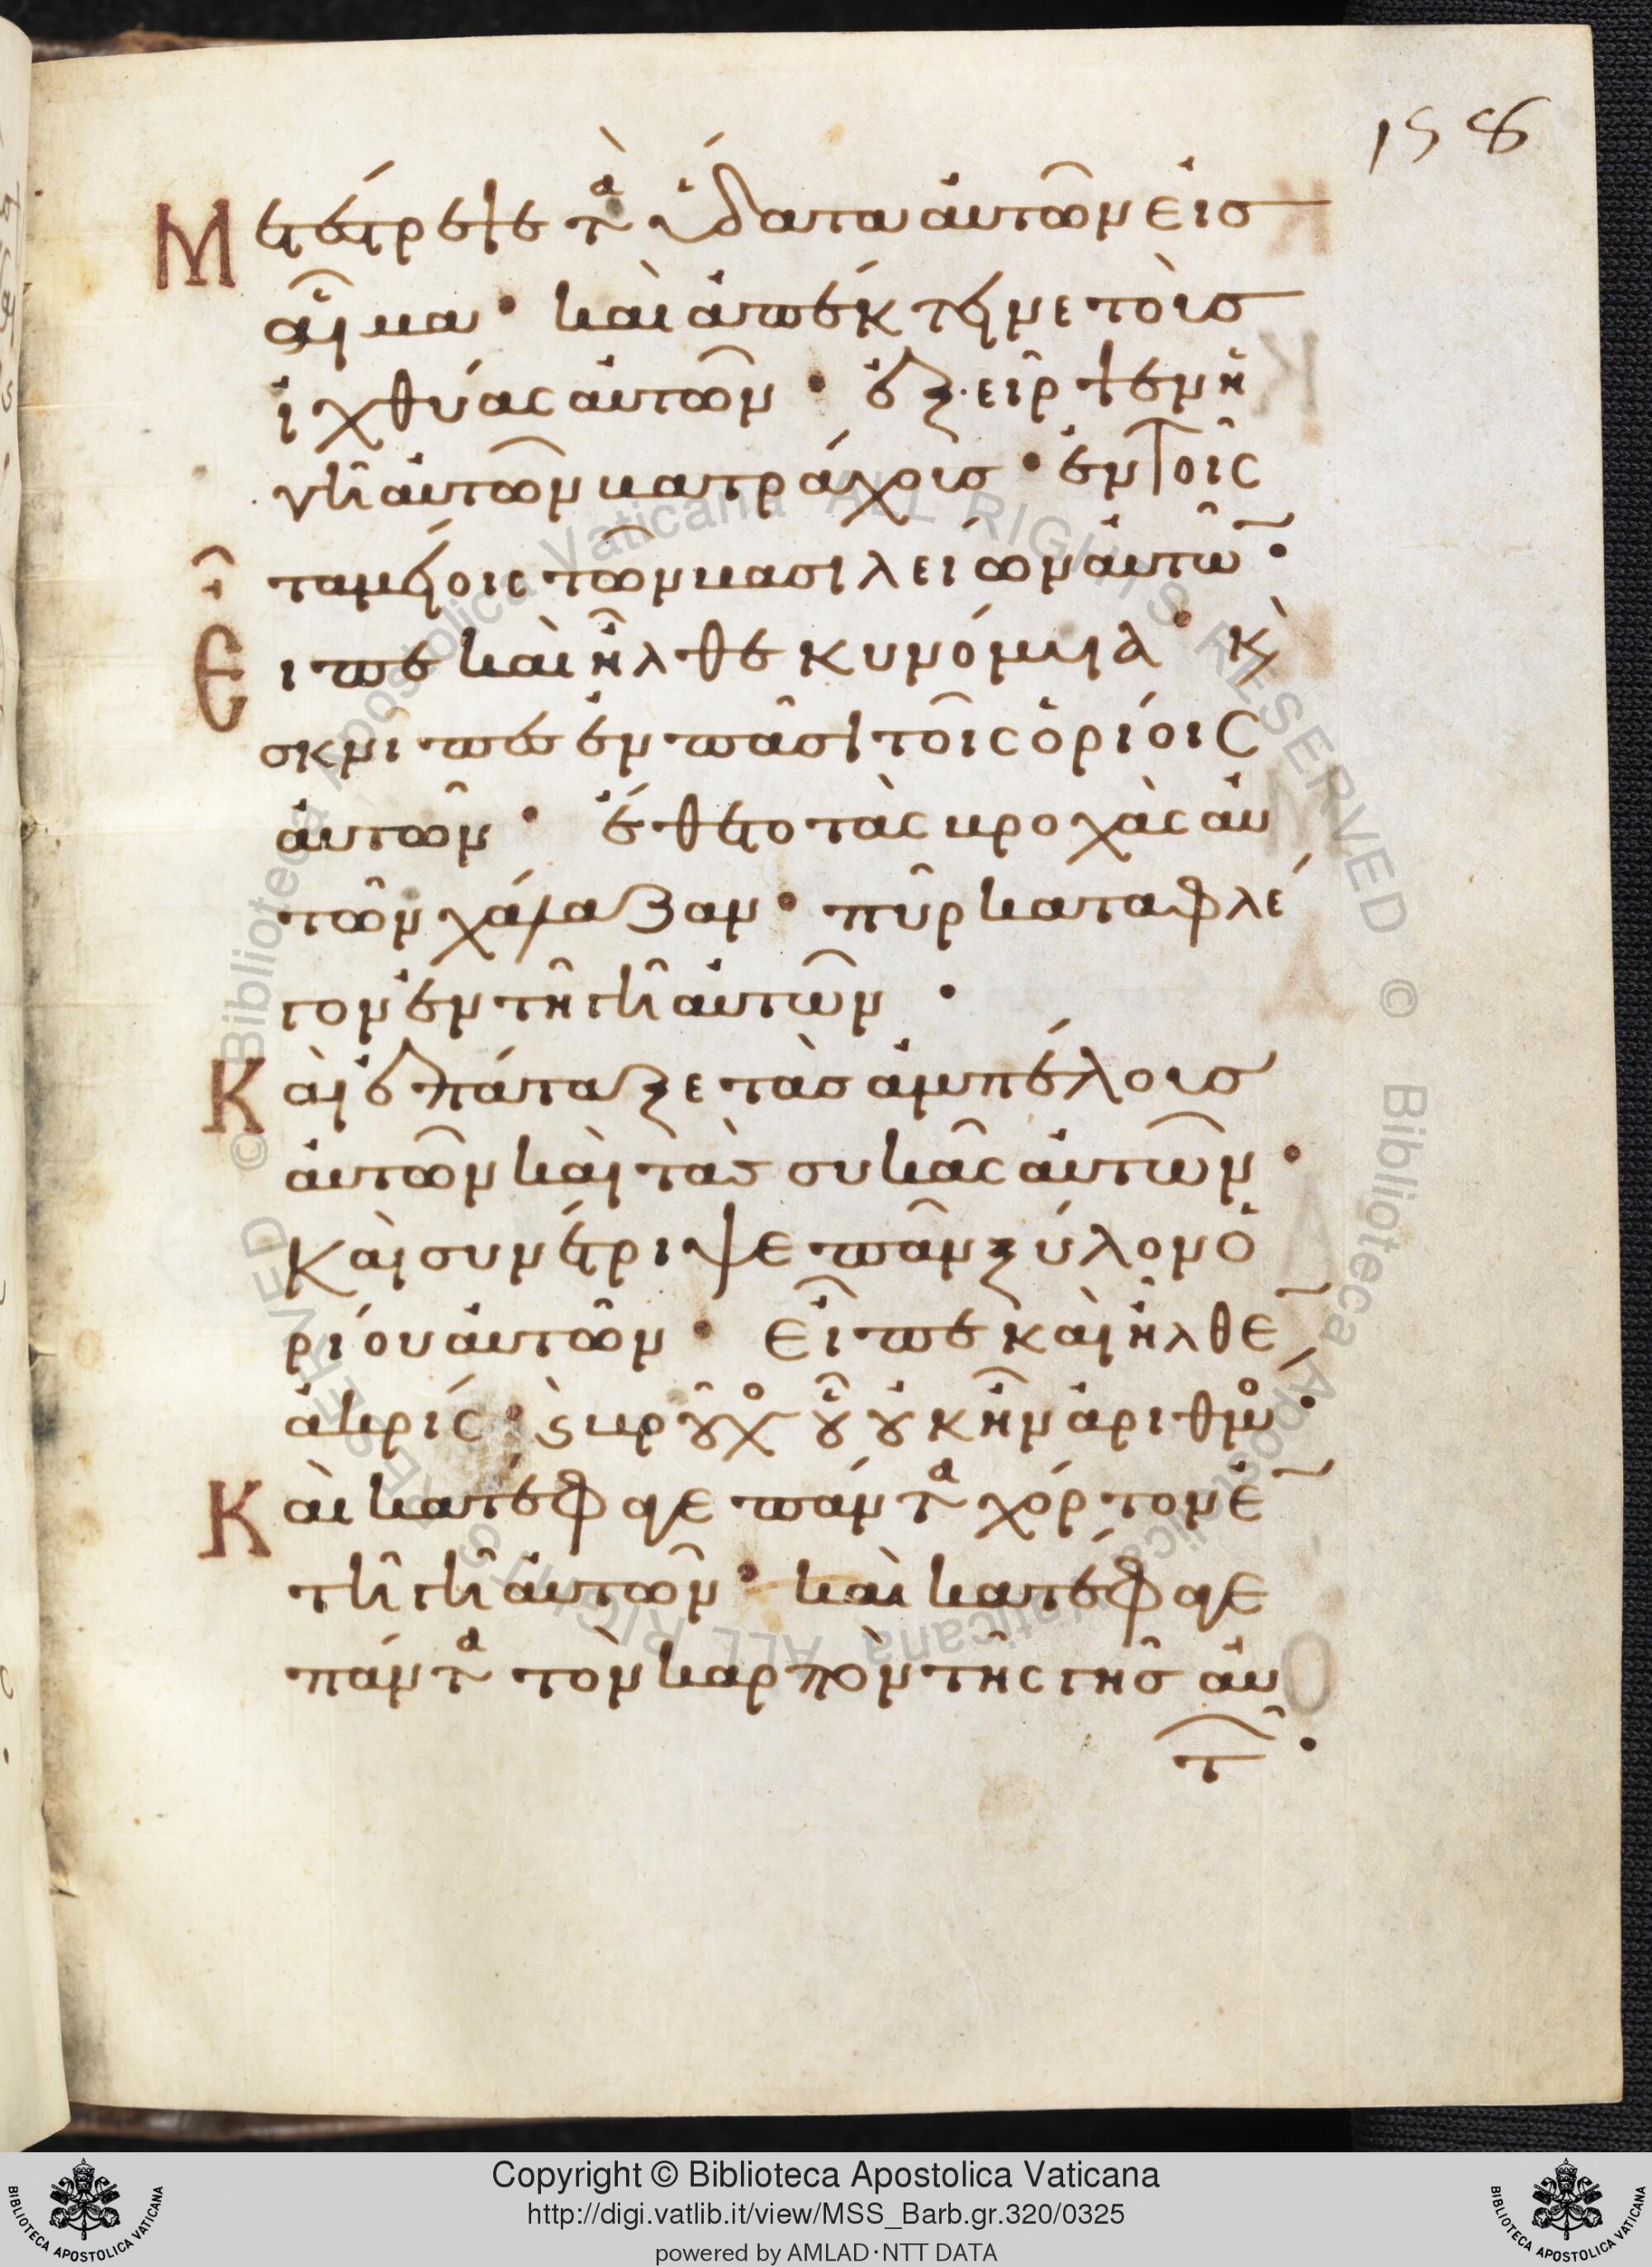 158
Μετέρεψε τὰ ὕδατα αὐτῶν εἰσ
αἷμα · καὶ ἀπέκτεινε τοὺσ
ἰχθύας αὐτῶν · ἐξεῖρψεν ἡ
γῆ αὐτῶν βατράχουσ · ἐν τοῖς
ταμείοις τῶν βασιλείων αὐτῶ ·
Εἶπε καὶ ἦλθε κυνόμυια · κὲ
σκνίπες ἐν πᾶσι τοῖς ὁρίοις
αὐτῶν · ἔθετο τὰς βροχὰς αὐ
τῶν χάλαζαν · πῦρ καταφλέ
γον ἐν τῇ γῇ αὐτῶν ·
Καὶ ἐπάταξε τὰσ ἀμπέλουσ
αὐτῶν καὶ τὰς συκᾶς αὐτῶν ·
Καὶ συνέτριψε πᾶν ξύλον ὁ
ρίου αὐτῶν · Εἶπε καὶ ἦλθε
ἀκρίς · ϛ βροῦχος οὗ οὐκ ἦν ἀριθμὸς ·
Καὶ κατέφαγε πάντα χόρτον ἐ
τῇ γῇ αὐτῶν · καὶ κατέφαγε
πάντα τὸν καρπὸν τῆς γῆσ αὐ
τῶ ·
© Biblioteca Apostolica Vaticana ALL RIGHTS RESERVED © Biblioteca Apostolica Vaticana ALL RIGHTS RESERVED
Copyright © Biblioteca Apostolica Vaticana
http://digi.vatlib.it/view/MSS_Barb.gr.320/0325
powered by AMLAD·NTT DATA
BIBLIOTECA APOSTOLICA VATICANA
BIBLIOTECA APOSTOLICA VATICANA